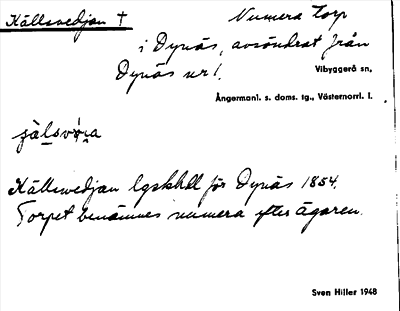 Källsvedjan †
Numera torp
i Dynäs, avsöndrat från
Dynäs nr 1.
Vibyggerå sn,
Ångermanl. s. doms. tg., Västernorrl. l.
Källsvedjan lgskhll för Dynäs 1854.
Torpet benämnes numera efter ägaren.
Sven Hiller 1948